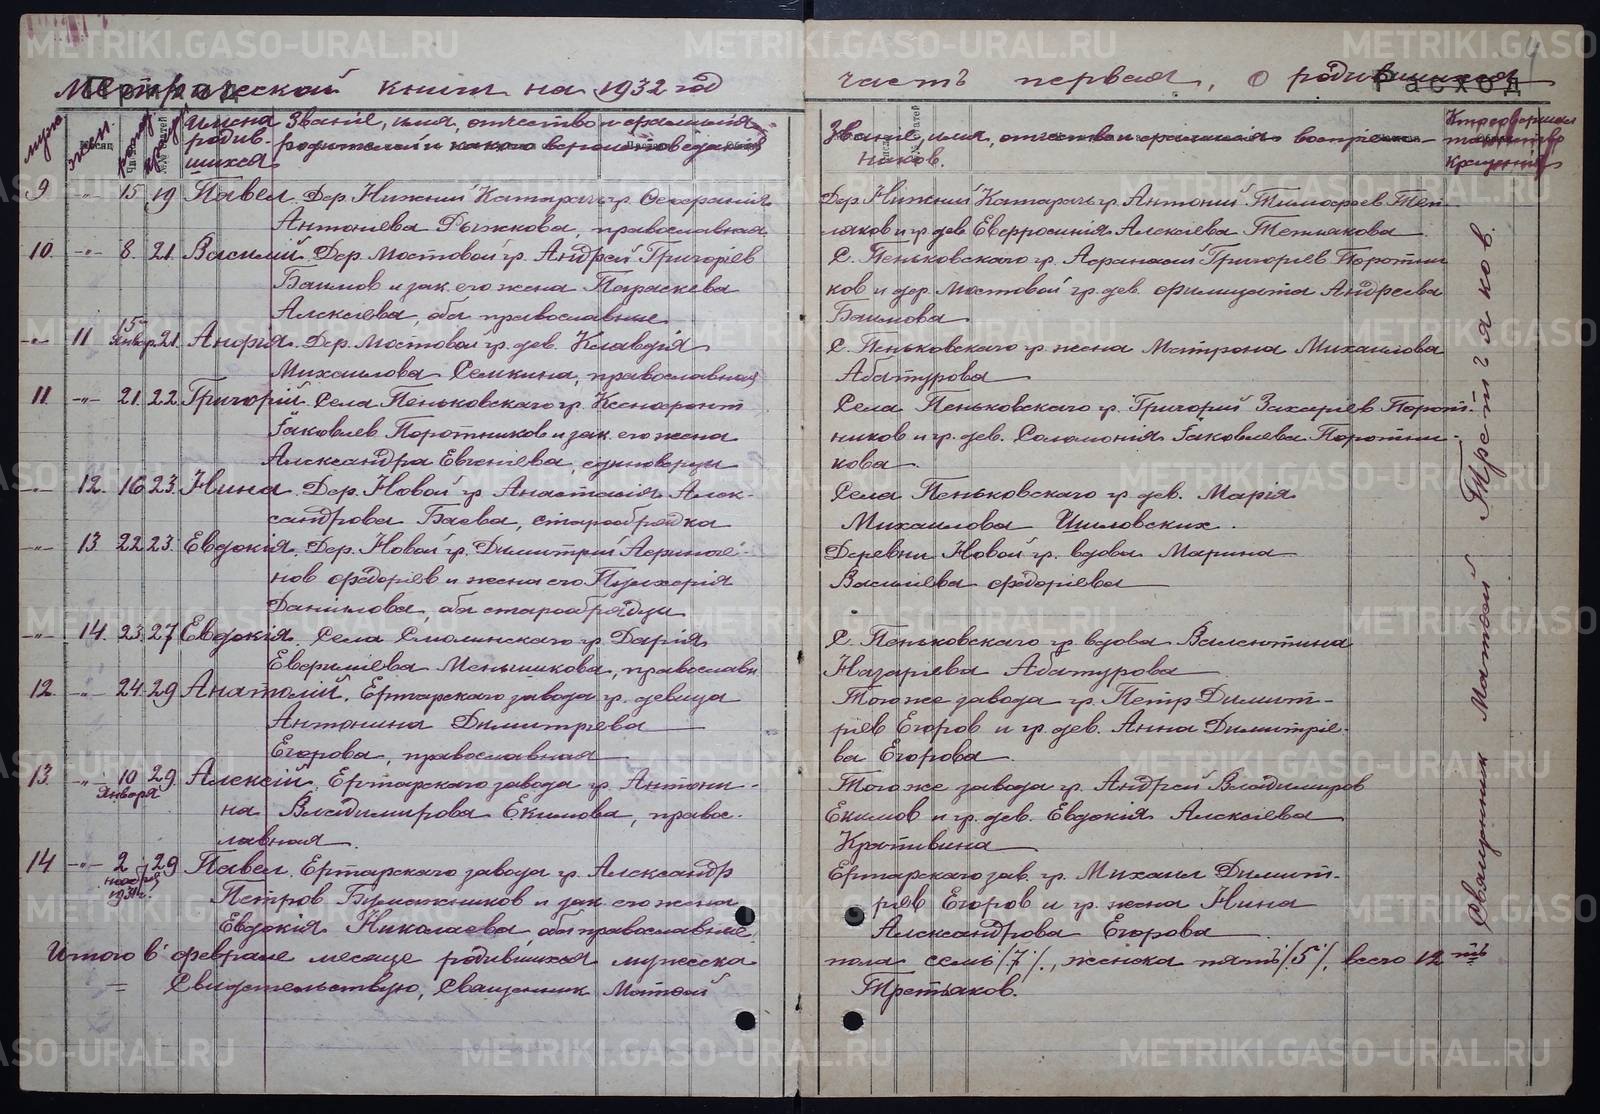 Метрической книги на 1932 год часть первая, о родившихся
Приход
Расход
муж. жен. рожд. крещ. Имена родившихся
Званіе, имя, отчество и фамилия
родителей и какого вероисповедания
Званіе, имя, отчество и фамилия восприем-
ников.
Кто совершал
таинство
крещения
9 -"- 15 19 Павел. Дер. Нижний Катарач гр. Ѳеофранія
Антониева Рыжкова, православная
Дер. Нижний Катарач гр. Антоний Тимофеев Теп-
ляков и гр. дев. Евфросиния Алексіева Теплякова
10. -"- 8. 21. Василий. Дер. Мостовой гр. Андрей Григоріев
Баимов и зак. его жена Параскева
Алексіева, оба православные
С. Пеньковского гр. Афанасий Григоріев Поротни
ков и дер. Мостовой гр. дев. Филицата Андреева
Баимова
-"- 11 15 Январ. 21. Анфія. Дер. Мостовой гр. дев. Клавдія
Михаилова Семкина, православная
С. Пеньковского гр. жена Матрона Михаилова
Абатурова
11. -"- 21. 22. Григорій. Села Пеньковского гр. Ксенофонт
Іаковлев Поротников и зак. его жена
Александра Евгеніева, единоверцы
Села Пеньковского гр. Григорий Захаріев Порот-
ников и гр. дев. Соломонія Іаковлева Поротни-
кова
-"- 12. 16 23. Нина. Дер. Новой гр. Анастасія Алек-
сандрова Баева, старообрядка
Села Пеньковского гр. дев. Марія
Михаилова Ишловских.
-"- 13. 22 23. Евдокія. Дер. Новой гр. Димитрий Афиноге-
нов Федоріев и жена его Пульхерія
Данилова, оба старообрядцы
Деревни Новой гр. вдова Марина
Васильева Федоріева
-"- 14. 23. 27 Евдокія. Села Смолинского гр. Дарія
Евфиміева Меньшикова, православн
С. Пеньковского гр. вдова Валентина
Назаріева Абатурова
12 -"- 24. 29 Анатолий. Ертарского завода гр. девица
Антонина Димитріева
Егорова, православная
Того же завода гр. Петр Димит-
ріев Егоров и гр. дев. Анна Димитріе-
ва Егорова
13. -"- 10 Января 29. Алексій. Ертарского завода гр. Антони-
на Владимирова Екимова, право-
славная.
Того же завода гр. Андрей Владимиров
Екимов и гр. дев. Евдокія Алексіева
Крапивина
14 -"- 2 ноября 1931 г. 29 Павел. Ертарского завода гр. Александр
Петров Бумажников и зак. его жена
Евдокія Николаева оба православные.
Ертарского зав. гр. Михаил Димит-
ріев Егоров и гр. жена Нина
Александрова Егорова
Священник Матфей Третьяков.
Итого в феврале месяце родившихся мужеска пола семь /7/., женска пять /5/, всего 12 ть
= Свидетельствую, Священник Матфей Третьяков.
METRIKI.GASO-URAL.RU